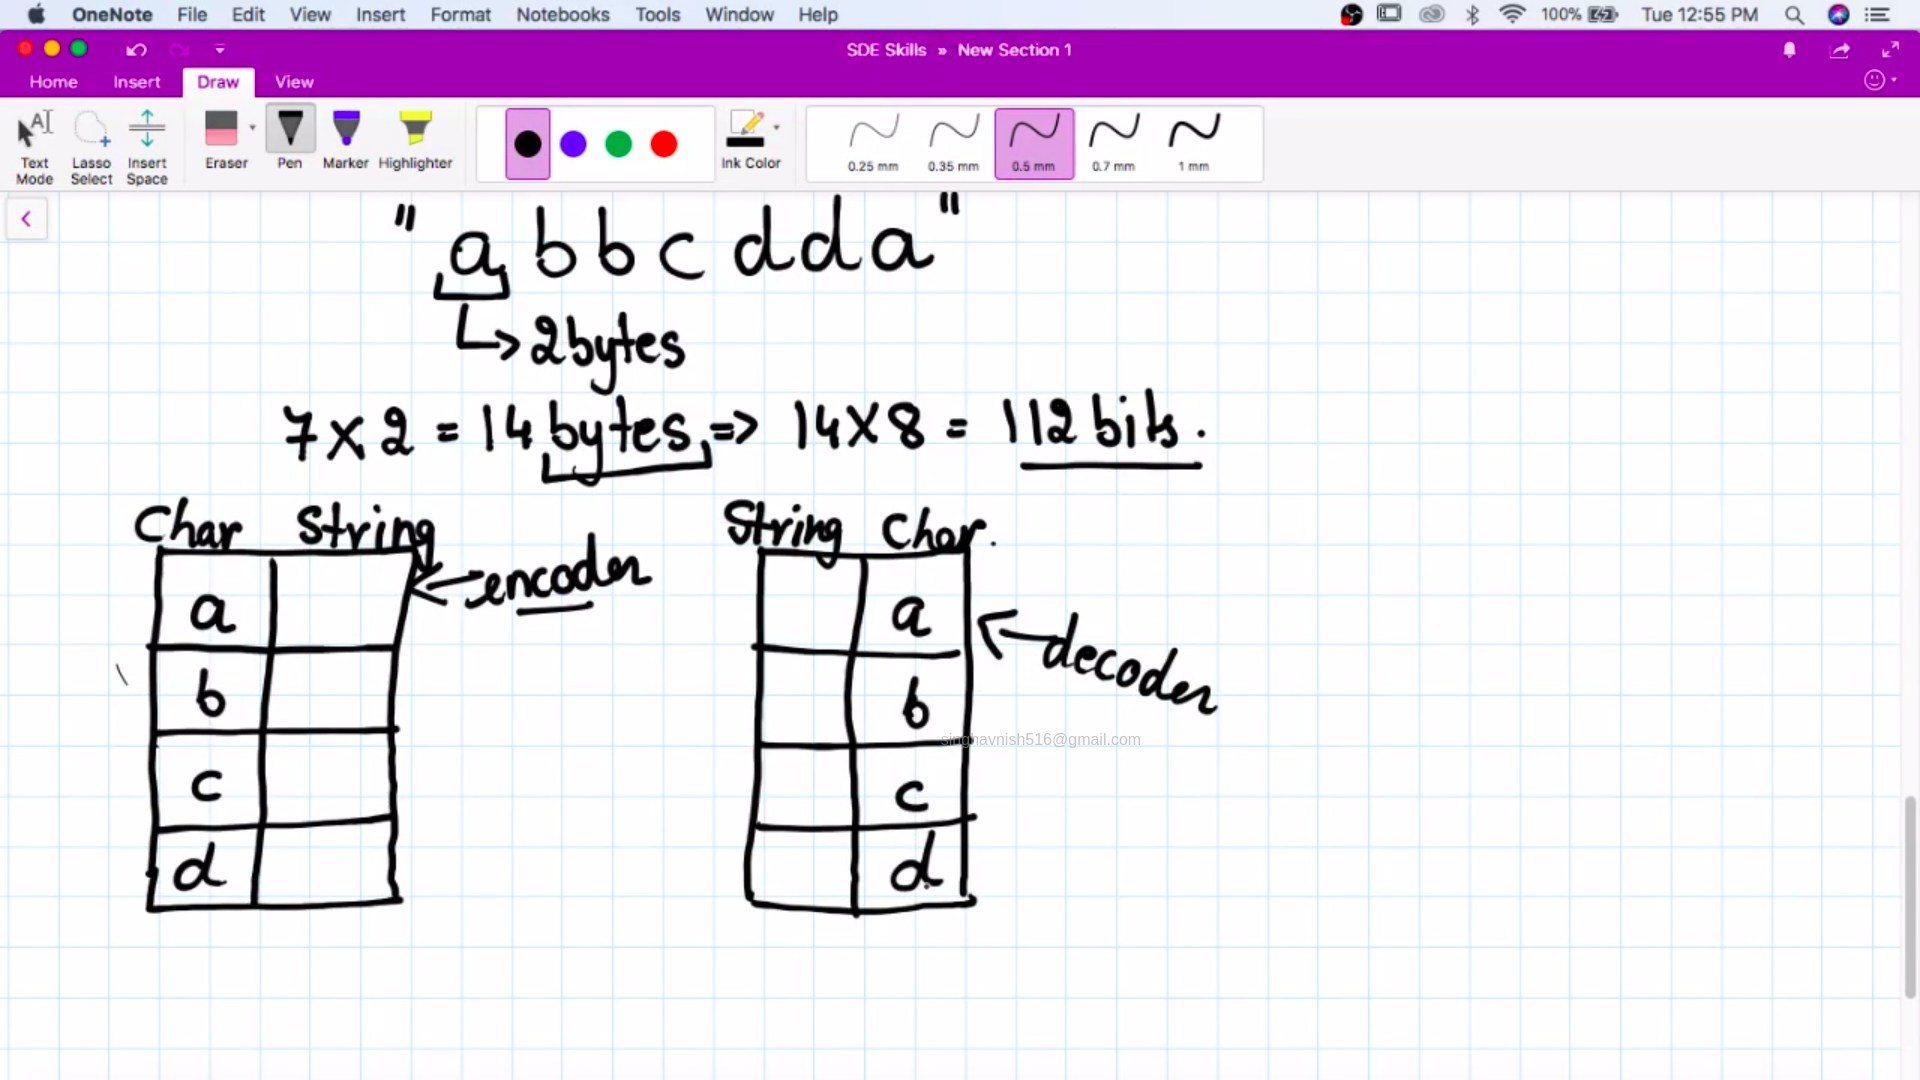 OneNote File Edit View Insert Format Notebooks Tools Window Help 100% Tue 12:55 PM
SDE Skills » New Section 1
Home Insert Draw View
Text Mode Lasso Select Insert Space Eraser Pen Marker Highlighter Ink Color 0.25 mm 0.35 mm 0.5 mm 0.7 mm 1 mm
" a b b c d d a "
2 bytes
7 x 2 = 14 bytes => 14 x 8 = 112 bits.
Char String String Char.
encoder
a a
decoder
b b
singhavnish516@gmail.com
c c
d d